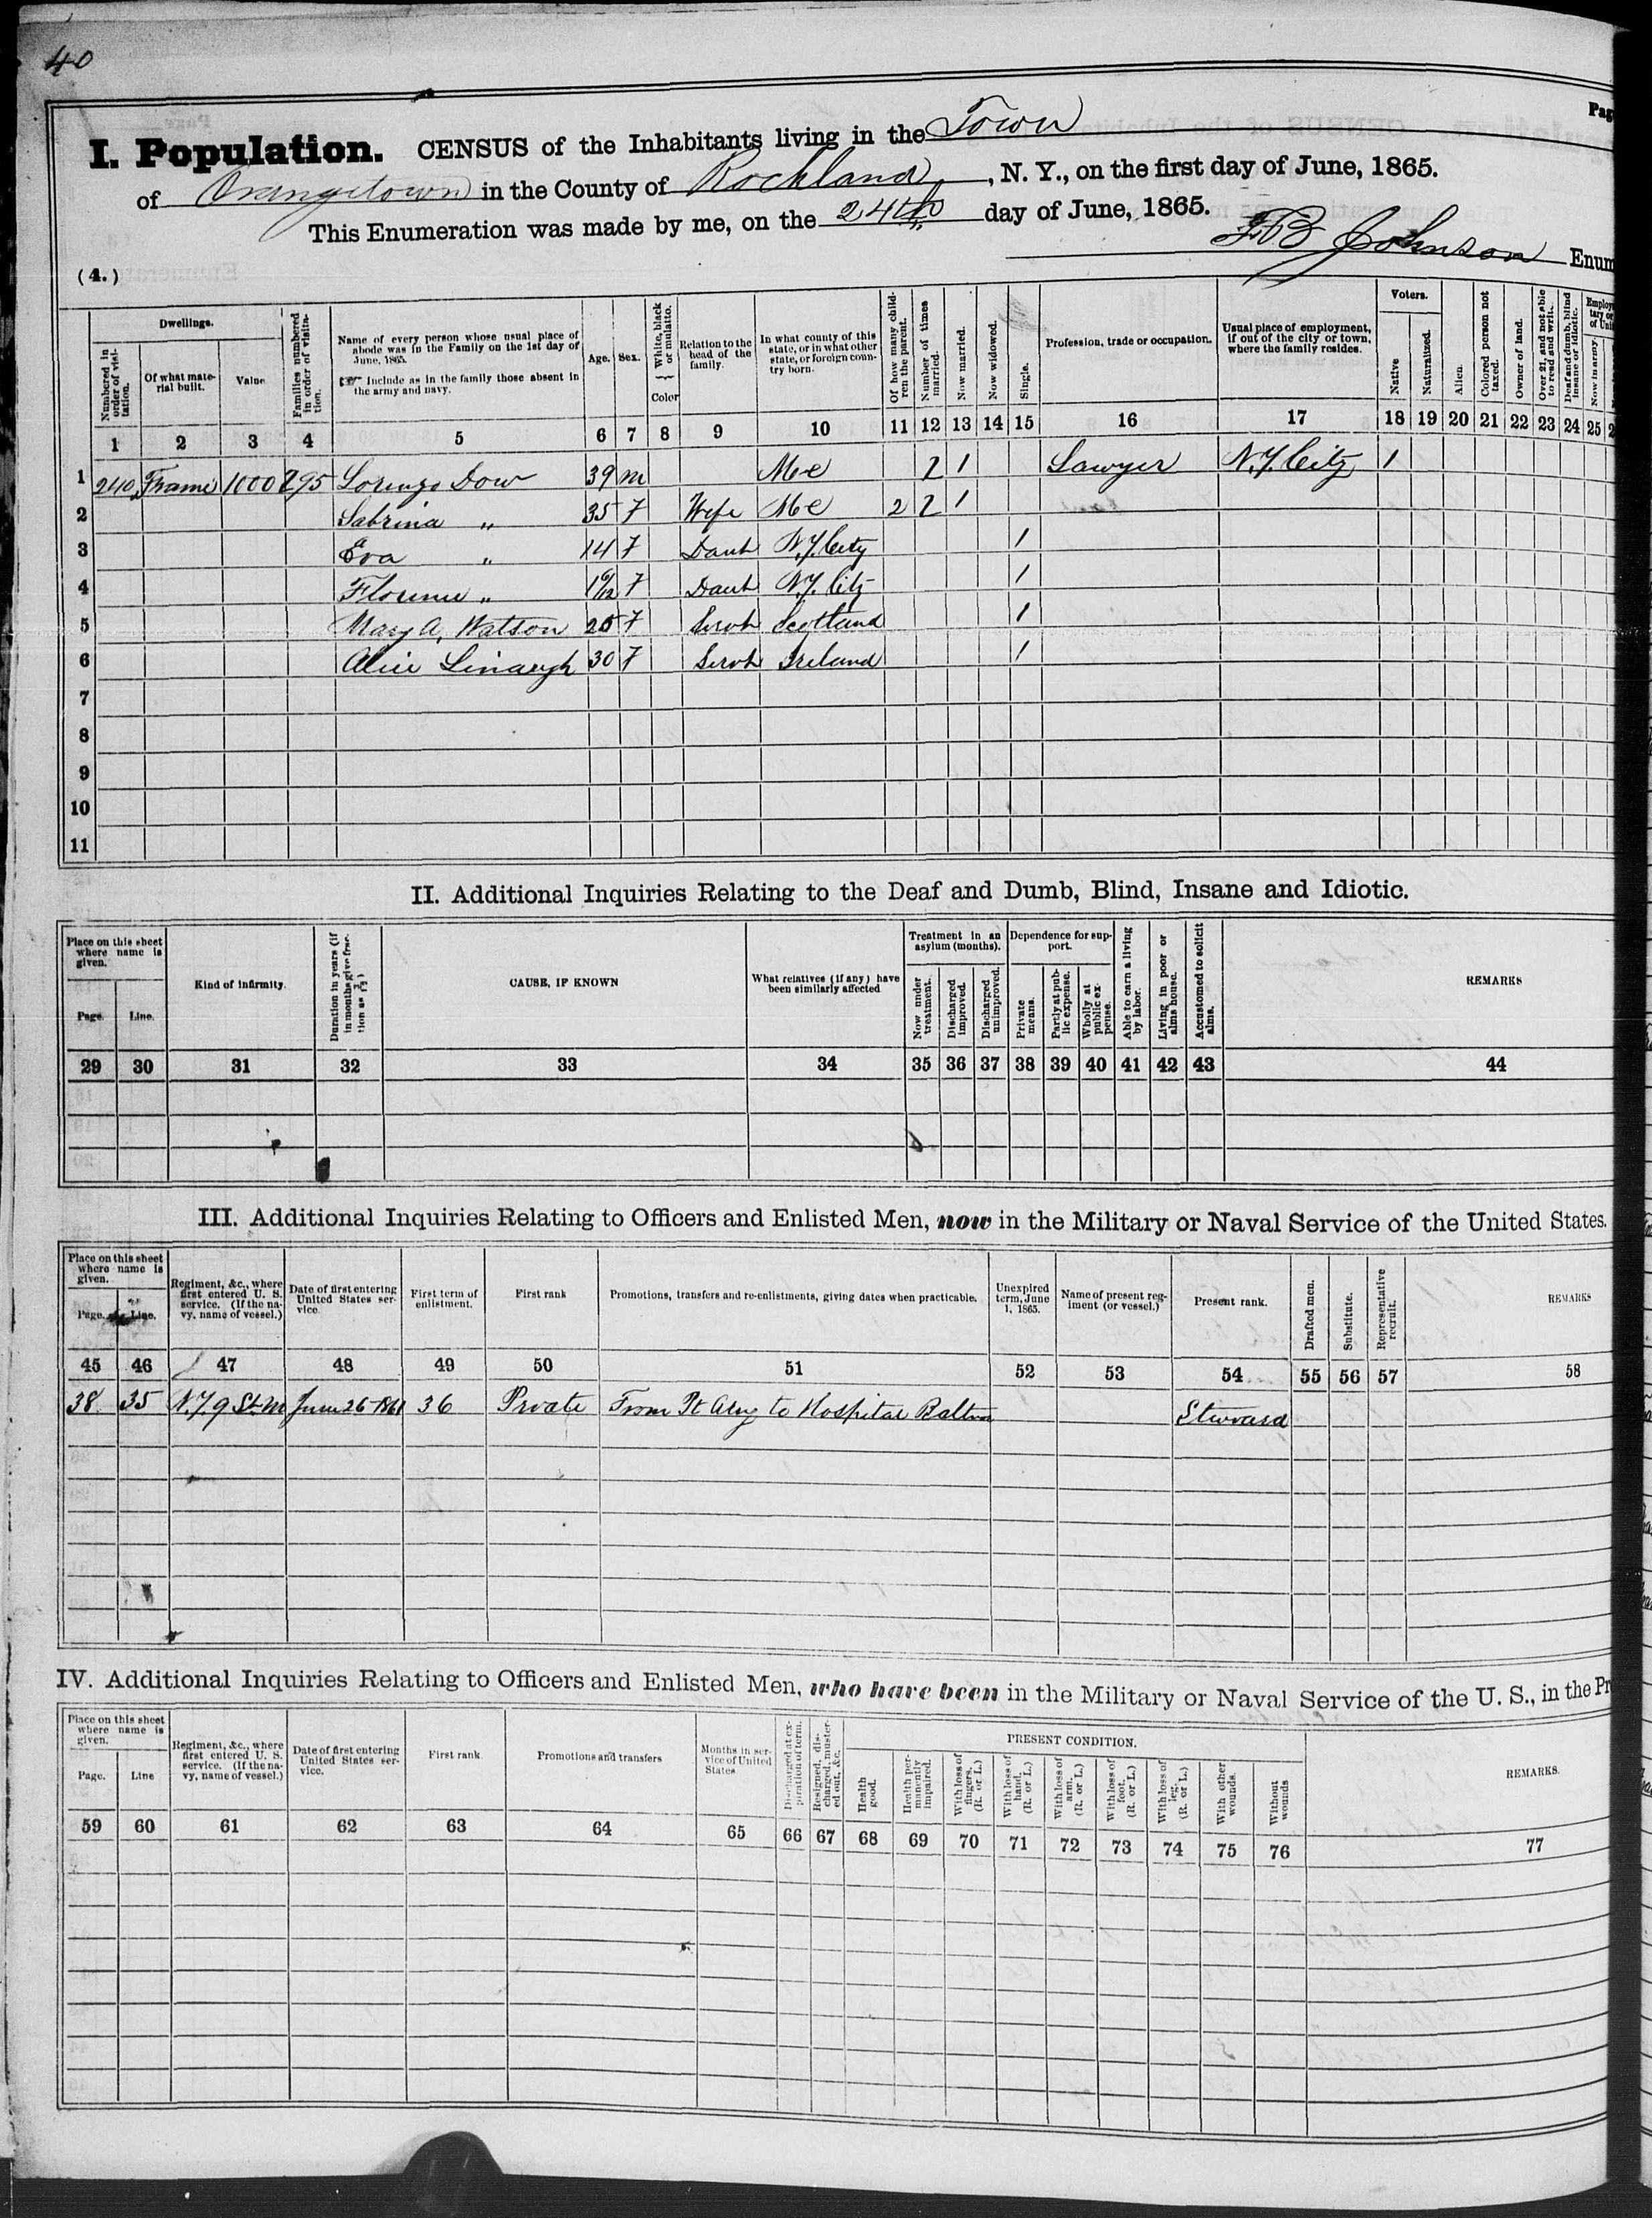 40
Pag
I. Population. CENSUS of the Inhabitants living in the Town
of Orangetown in the County of Rockland, N. Y., on the first day of June, 1865.
This Enumeration was made by me, on the 24th day of June, 1865.
Johnson Enum
(4.)
Dwellings.
Numbered in order of visitation.
Of what material built.
Value
Families numbered in order of visitation.
Name of every person whose usual place of abode was in the Family on the 1st day of June, 1865.
Include as in the family those absent in the army and navy.
Age.
Sex.
White, black or mulatto. Color
Relation to the head of the family.
In what county of this state, or in what other state, or foreign country born.
Of how many children the parent.
Number of times married.
Now married.
Now widowed.
Single.
Profession, trade or occupation.
Usual place of employment, if out of the city or town, where the family resides.
Voters.
Native
Naturalized.
Alien.
Colored person not taxed.
Owner of land.
Over 21, and not able to read and write.
Deaf and dumb, blind insane or idiotic.
Now in army.
1 2 3 4 5 6 7 8 9 10 11 12 13 14 15 16 17 18 19 20 21 22 23 24 25 2
1 240 Frame 1000 295 Lorenzo Dow 39 m Me 1 Lawyer N.Y. City 1
2 Sabrina " 35 F Wife Me 2 1
3 Eva " 14 F Daut N.Y. City 1
4 Florence " F Daut N.Y. City 1
5 Mary A. Watson 25 F Servt Scotland 1
6 Alice Linaugh 30 F Servt Ireland 1
7
8
9
10
11
II. Additional Inquiries Relating to the Deaf and Dumb, Blind, Insane and Idiotic.
Place on this sheet where name is given.
Page. Line.
Kind of infirmity.
Duration in years (if in months give fraction as
CAUSE, IF KNOWN
What relatives (if any) have been similarly affected
Treatment in an asylum (months).
Now under treatment.
Discharged improved.
Discharged unimproved.
Dependence for support.
Private means.
Partly at public expense.
Wholly at public expense.
Able to earn a living by labor.
Living in poor or alms house.
Accustomed to solicit alms.
REMARKS
29 30 31 32 33 34 35 36 37 38 39 40 41 42 43 44
III. Additional Inquiries Relating to Officers and Enlisted Men, now in the Military or Naval Service of the United States.
Place on this sheet where name is given.
Page. Line.
Regiment, &c., where first entered U. S. service. (If the navy, name of vessel.)
Date of first entering United States service.
First term of enlistment.
First rank
Promotions, transfers and re-enlistments, giving dates when practicable.
Unexpired term, June 1, 1865.
Name of present regiment (or vessel.)
Present rank.
Drafted men.
Substitute.
Representative recruit.
REMARKS
45 46 47 48 49 50 51 52 53 54 55 56 57 58
38 35 N.Y. 9 St. M June 26 1861 36 Private From to Hospital Steward
IV. Additional Inquiries Relating to Officers and Enlisted Men, who have been in the Military or Naval Service of the U. S., in the Pr
Place on this sheet where name is given.
Page. Line
Regiment, &c., where first entered U. S. service. (If the navy, name of vessel.)
Date of first entering United States service.
First rank
Promotions and transfers
Months in service of United States
Discharged at expiration of term.
Resigned, discharged, mustered out, &c.
PRESENT CONDITION.
Health good.
Health permanently impaired.
With loss of fingers. (R. or L.)
With loss of hand. (R. or L.)
With loss of arm. (R. or L.)
With loss of foot. (R. or L.)
With loss of leg. (R. or L.)
With other wounds.
Without wounds
REMARKS.
59 60 61 62 63 64 65 66 67 68 69 70 71 72 73 74 75 76 77